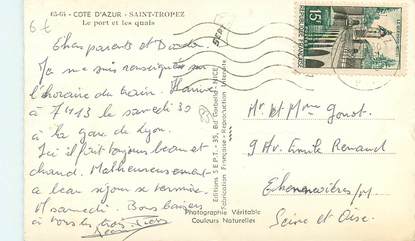 6€
45-64 - COTE D'AZUR - SAINT-TROPEZ
Le port et les quais
Chers parents et
Je me suis renseigné sur
l'horaire du train. J'arrive
à 7h13 le samedi 30
à la gare de Lyon.
Ici il fait toujours beau et
chaud. Malheureusement
ce beau séjour se termine.
A samedi. Bons baisers
à vous
Editions S.E.P.T. - 35, Bd Gambetta - NICE
Fabrication Française - Reproduction Interdite
Photographie Véritable
Couleurs Naturelles
15F
Mr et Mme
9 Av. Emile Renaud
Chennevières
Seine et Oise